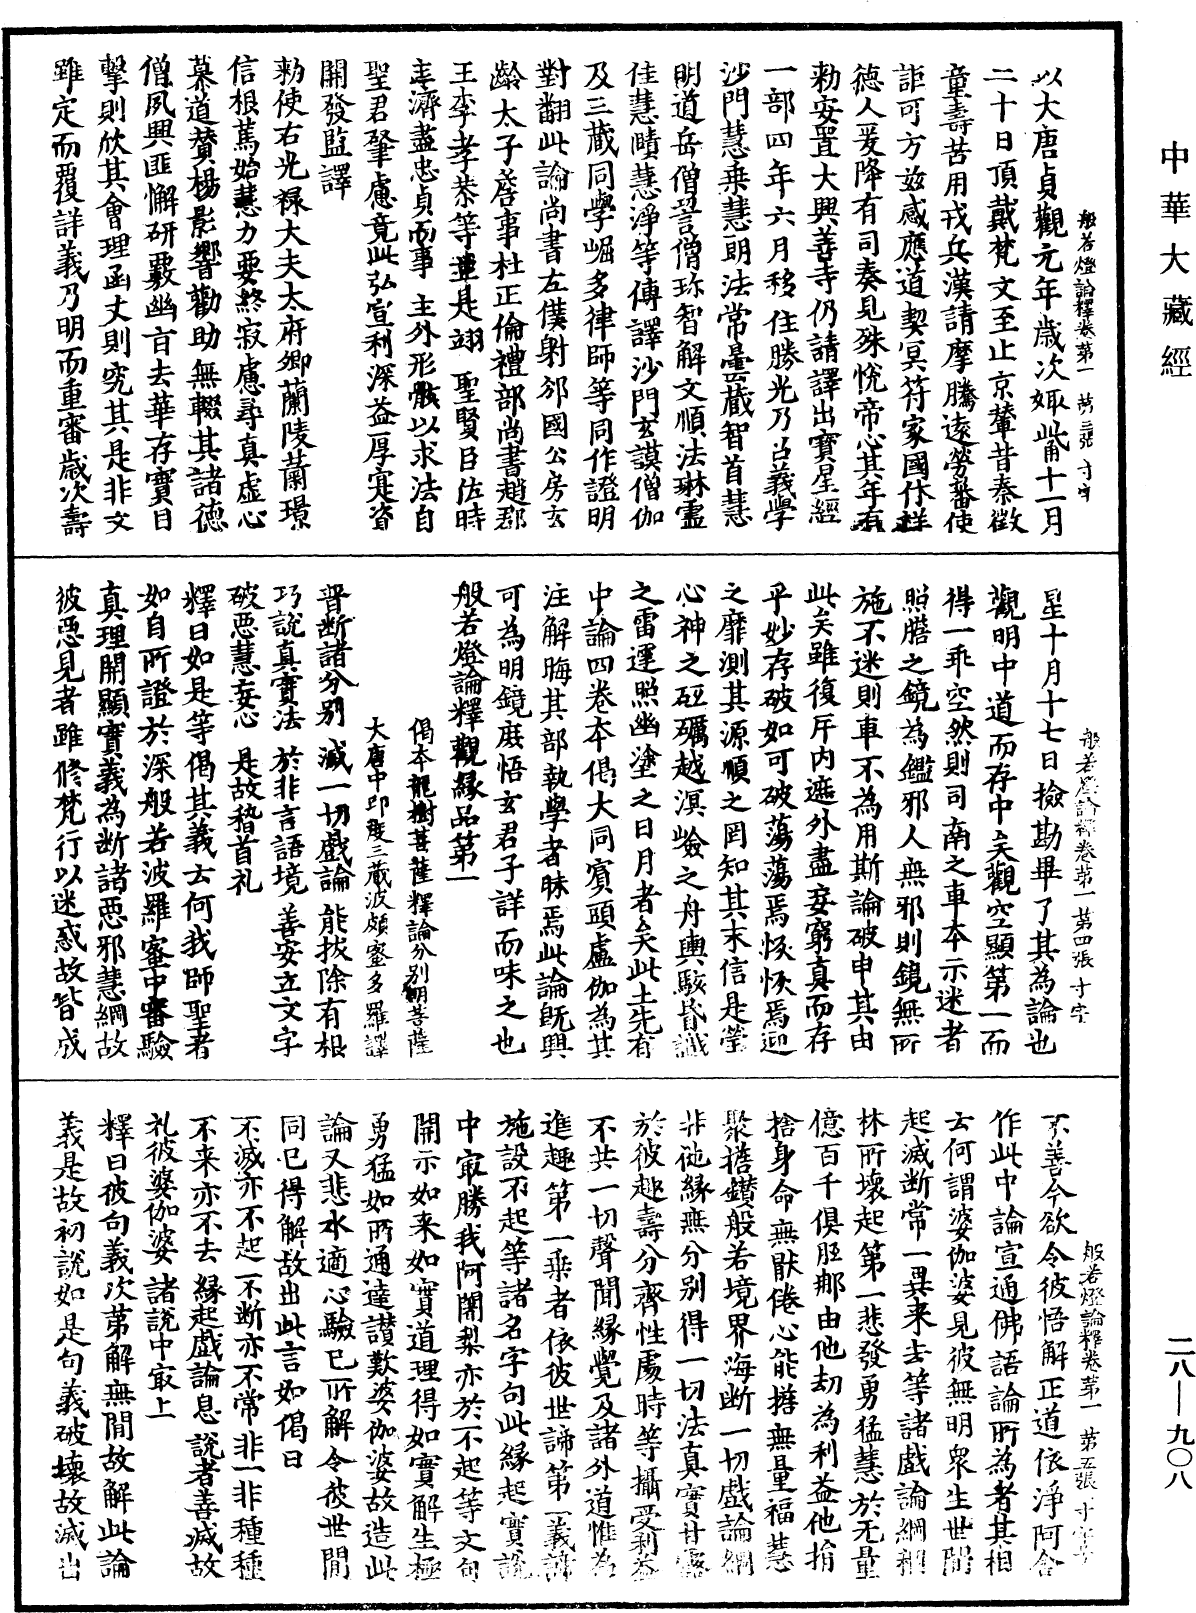 中華大藏經
二八—九〇八
般若燈論釋卷第一
以大唐貞觀元年歲次娵訾十一月
二十日頂戴梵文至止京輦昔秦徵
童壽苦用戎兵漢請摩騰遠勞蕃使
詎可方茲感應道契冥符家國休祥
德人爰降有司奏見殊悅帝心其年有
勅安置大興善寺仍請譯出寶星經
一部四年六月移住勝光乃召義學
沙門慧乘慧朗法常曇藏智首慧
明道岳僧詧僧珍智解文順法琳靈
佳慧賾慧淨等傳譯沙門玄謨僧伽
及三藏同學崛多律師等同作證明
對翻此論尚書左僕射邠國公房玄
齡太子詹事杜正倫禮部尚書趙郡
王李孝恭等並是翊 聖賢臣佐時
主濟盡忠貞而事 主外形骸以求法自
聖君肇慮竟此弘宣利深益厚寔資
開發監譯
勅使右光祿大夫太府卿蘭陵蕭璟
信根篤始慧力要終寂慮尋真虛心
慕道贊揚影響勸助無輟其諸德
僧夙興匪懈研覈幽旨去華存實目
擊則欣其會理函丈則究其是非文
雖定而覆詳義乃明而重審歲次壽
般若燈論釋卷第一 第四張
星十月十七日撿勘畢了其為論也
觀明中道而存中失觀空顯第一而
得一乖空然則司南之車本示迷者
照膽之鏡為鑑邪人無邪則鏡無所
施不迷則車不為用斯論破申其由
此矣雖復斥內遮外盡妄窮真而存
乎妙存破如可破蕩蕩焉恢恢焉迎
之靡測其源順之罔知其末信是瑩
心神之砥礪越溟險之舟輿駭昏識
之雷運照幽塗之日月者矣此土先有
中論四卷本偈大同賓頭盧伽為其
注解晦其部執學者昧焉此論既興
可為明鏡庶悟玄君子詳而味之也
般若燈論釋觀緣品第一
偈本龍樹菩薩釋論分別明菩薩
大唐中印度三藏波頗蜜多羅譯
普斷諸分別 滅一切戲論 能拔除有根
巧說真實法 於非言語境 善安立文字
破惡慧妄心 是故稽首礼
釋曰如是等偈其義云何我師聖者
如自所證於深般若波羅蜜中審驗
真理開顯實義為斷諸惡邪慧網故
彼惡見者雖修梵行以迷惑故皆成
般若燈論釋卷第一 第五張
不善今欲令彼悟解正道依淨阿含
作此中論宣通佛語論所為者其相
云何謂婆伽婆見彼無明衆生世間
起滅斷常一異来去等諸戲論網稠
林所壞起第一悲發勇猛慧於无量
億百千俱胝那由他劫為利益他捐
捨身命無猒倦心能擔無量福慧
聚擔鑚般若境界海斷一切戲論網
非他緣無分別得一切法真實甘露
於彼趣壽分齊性處時等攝受利益
不共一切聲聞緣覺及諸外道惟為
進趣第一乘者依彼世諦第一義諦
施設不起等諸名字句此緣起實說
中㝡勝我阿闍梨亦於不起等文句
開示如来如實道理得如實解生極
勇猛如所通達讃歎婆伽婆故造此
論又悲水適心驗已所解令彼世間
同已得解故出此言如偈曰
不滅亦不起 不斷亦不常 非一非種種
不来亦不去 緣起戲論息 說者善滅故
礼彼婆伽婆 諸說中㝡上
釋曰彼句義次第解無間故解此論
義是故初說如是句義破壞故滅出